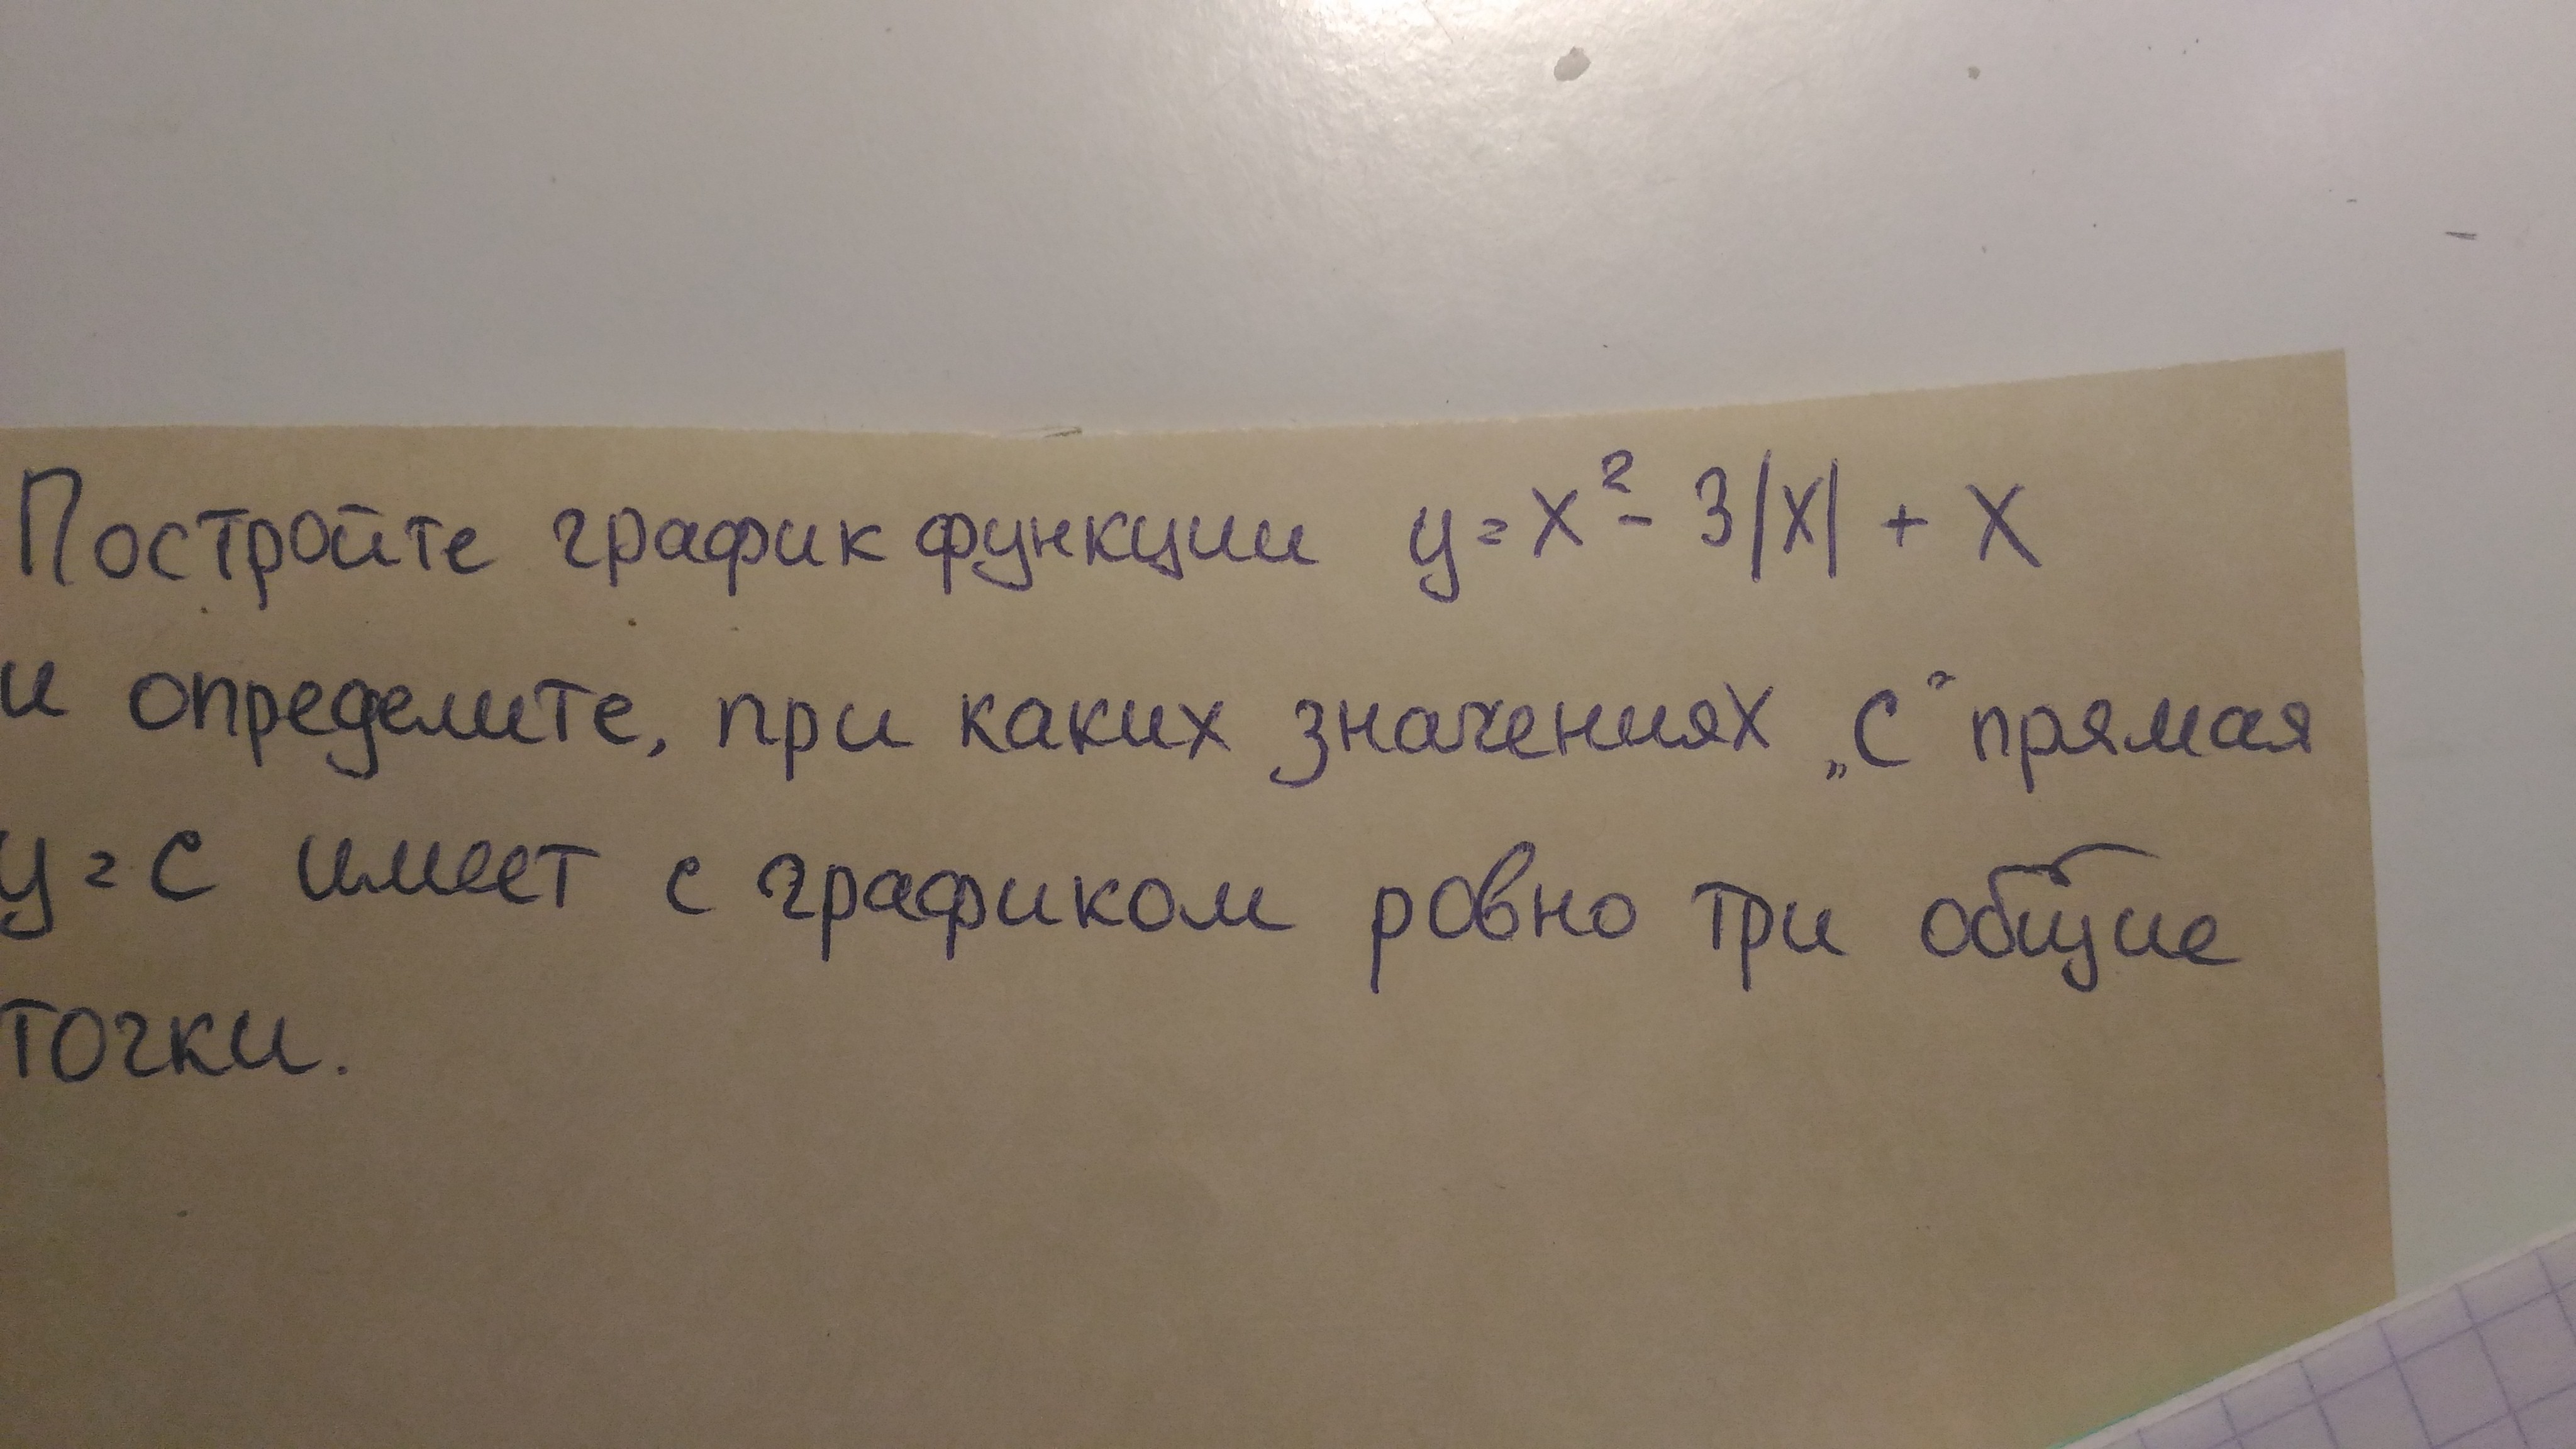 Постройте график функции y = x² - 3|x| + x
и определите, при каких значениях „с“ прямая
y = c имеет с графиком ровно три общие
точки.